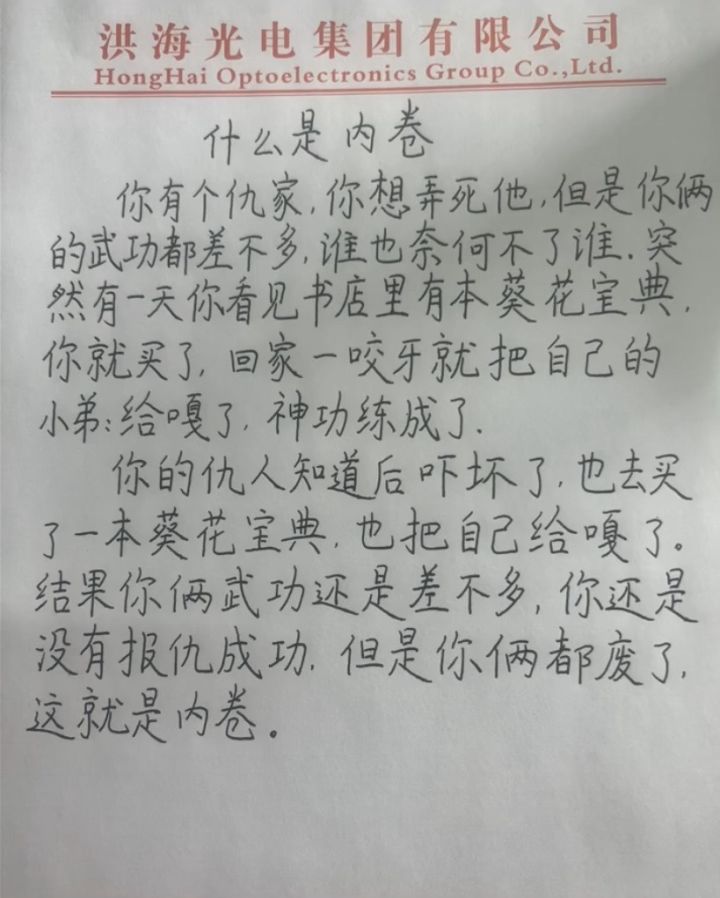 洪海光电集团有限公司
HongHai Optoelectronics Group Co.,Ltd.
什么是内卷
你有个仇家,你想弄死他,但是你俩
的武功都差不多,谁也奈何不了谁.突
然有一天你看见书店里有本葵花宝典,
你就买了,回家一咬牙就把自己的
小弟:给嘎了,神功练成了.
你的仇人知道后吓坏了,也去买
了一本葵花宝典,也把自己给嘎了。
结果你俩武功还是差不多,你还是
没有报仇成功,但是你俩都废了,
这就是内卷。